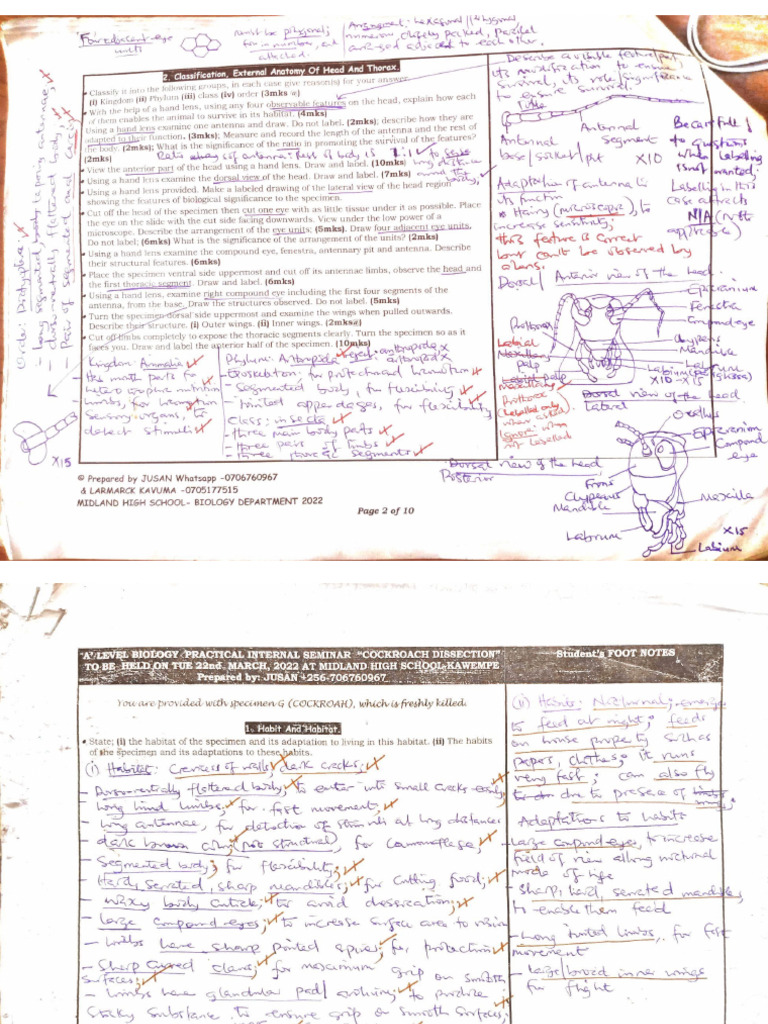 Four adjacent eye units
must be polygonal; four in number, and attached.
Arrangement: hexagonal / polygonal
numerous, closely packed, parallel
arranged adjacent to each other.
2. Classification, External Anatomy Of Head And Thorax.
• Classify it into the following groups, in each case give reason(s) for your answer.
(i) Kingdom (ii) Phylum (iii) class (iv) order (3mks)
• With the help of a hand lens, using any four observable features on the head, explain how each
of them enables the animal to survive in its habitat. (4mks)
Using a hand lens examine one antenna and draw. Do not label. (2mks); describe how they are
adapted to their function. (3mks); Measure and record the length of the antenna and the rest of
the body. (2mks); What is the significance of the ratio in promoting the survival of the features?
(2mks)
• View the anterior part of the head using a hand lens. Draw and label. (10mks)
• Using a hand lens examine the dorsal view of the head. Draw and label. (7mks)
• Using a hand lens provided. Make a labeled drawing of the lateral view of the head region
showing the features of biological significance to the specimen.
• Cut off the head of the specimen then cut one eye with as little tissue under it as possible. Place
the eye on the slide with the cut side facing downwards. View under the low power of a
microscope. Describe the arrangement of the eye units. (5mks). Draw four adjacent eye units.
Do not label; (6mks) What is the significance of the arrangement of the units? (2mks)
• Using a hand lens examine the compound eye, fenestra, antennary pit and antenna. Describe
their structural features. (6mks)
• Place the specimen ventral side uppermost and cut off its antennae limbs, observe the head and
the first thoracic segment. Draw and label. (6mks)
• Using a hand lens, examine right compound eye including the first four segments of the
antenna, from the base. Draw the structures observed. Do not label. (5mks)
• Turn the specimen dorsal side uppermost and examine the wings when pulled outwards.
Describe their structure. (i) Outer wings. (ii) Inner wings. (2mks)
• Cut off limbs completely to expose the thoracic segments clearly. Turn the specimen so as it
faces you. Draw and label the anterior half of the specimen. (10mks)
Order: Dictyoptera
- Long segmented body tapering antennae,
- dorso-ventrally flattened body
- Pair of segmented anal cerci
Kingdom: Animalia
- Has mouth parts for
heterotrophic nutrition
- Limbs, for locomotion
- Sensory organs, to
detect stimuli
X15
Phylum: Arthropoda
- Exoskeleton: for protection and locomotion
- Segmented body, for flexibility
- Jointed appendages, for flexibility
Class: insecta
- three main body parts
- three pair of limbs
- three thoracic segments
Describe a visible feature/part,
its modification to ensure
survival, its role/significance
to ensure survival.
Title
Antennal base/socket/pit
Antennal segment
X10
Be careful
to questions
when labelling
isn't wanted.
Labelling in this
case attracts
N/A (not
applicable)
Adaptation of antenna to
its function
- Hairy (microscope), to
increase sensitivity;
this feature is correct
but can't be observed by
a lens.
Dorsal/ Anterior view of the head.
Epicranium
Fenestra
Compound eye
Clypeus
Mandible
Labrum
X10 - X15
Prothorax
Labial
palp
Prothorax
(Labelled only
when asked.
Dorsal view of the head
Lateral
Ocellus
Epicranium
Compound
eye
Maxilla
X15
Labium
Dorsal view of the head
Posterior
Frons
Clypeus
Mandible
Labrum
© Prepared by JUSAN Whatsapp -0706760967
& LARMARCK KAVUMA -0705177515
MIDLAND HIGH SCHOOL- BIOLOGY DEPARTMENT 2022
Page 2 of 10
'A' LEVEL BIOLOGY PRACTICAL INTERNAL SEMINAR "COCKROACH DISSECTION"
TO BE HELD ON TUE 22nd MARCH, 2022 AT MIDLAND HIGH SCHOOL-KAWEMPE
Prepared by: JUSAN +256-706760967
Student's FOOT NOTES
You are provided with specimen G (COCKROAH), which is freshly killed.
1. Habit And Habitat.
• State; (i) the habitat of the specimen and its adaptation to living in this habitat. (ii) The habits
of the specimen and its adaptations to these habits.
(i) Habitat: Crevices of walls, dark cracks;
- Dorsoventrally flattened body; to enter into small cracks easily
- Long hind limbs; for fast movement;
- Long antennae, for detection of stimuli at long distances
- dark brown color; (not structural), for camouflage;
- Segmented body; for flexibility;
- Hard, serrated, sharp mandibles; for cutting food;
- waxy body cuticle; to avoid dessication;
- large compound eyes; to increase surface area to vision
- limbs have sharp pointed spines; for protection
- Sharp curved claws; for maximum grip on smooth
surfaces;
- Limbs have glandular pad/ arolium; to produce
sticky substance to ensure grip on smooth surfaces;
(ii) Habits: Nocturnal; emerge
to feed at night; feeds
on house property such as
paper, clothes; it runs
very fast; can also fly
due to presence of
wings;
Adaptations to habits
- Large compound eyes, to increase
field of view along nocturnal
mode of life
- Sharp, hard, serrated mandible,
to enable them feed
- Long jointed limbs, for fast
movement
- Large/broad inner wings
for flight